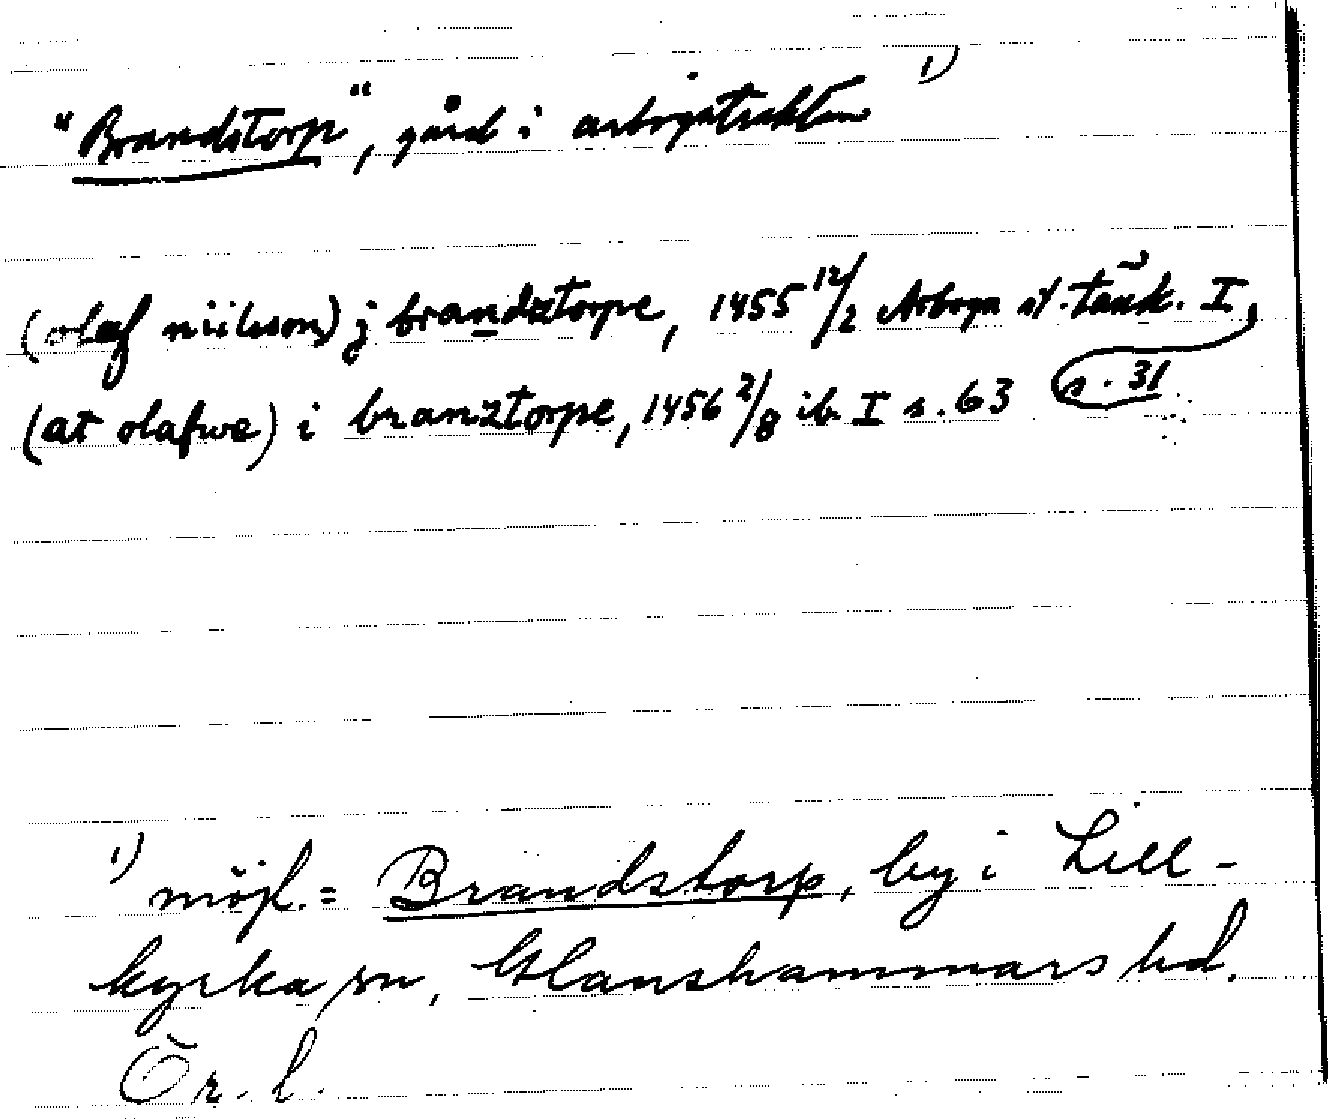 "Brandstorp", gård i arbogatrakten 1)
(olaf niilsson) j brandztorpe, 1455 12/2 Arboga st. tänk. I,
s. 31
(at olafwe) i branztorpe, 1456 2/8 ib. I s. 63
1) möjl. = Brandstorp, by i Lill-
kyrka sn, Glanshammars hd.
Ör. l.